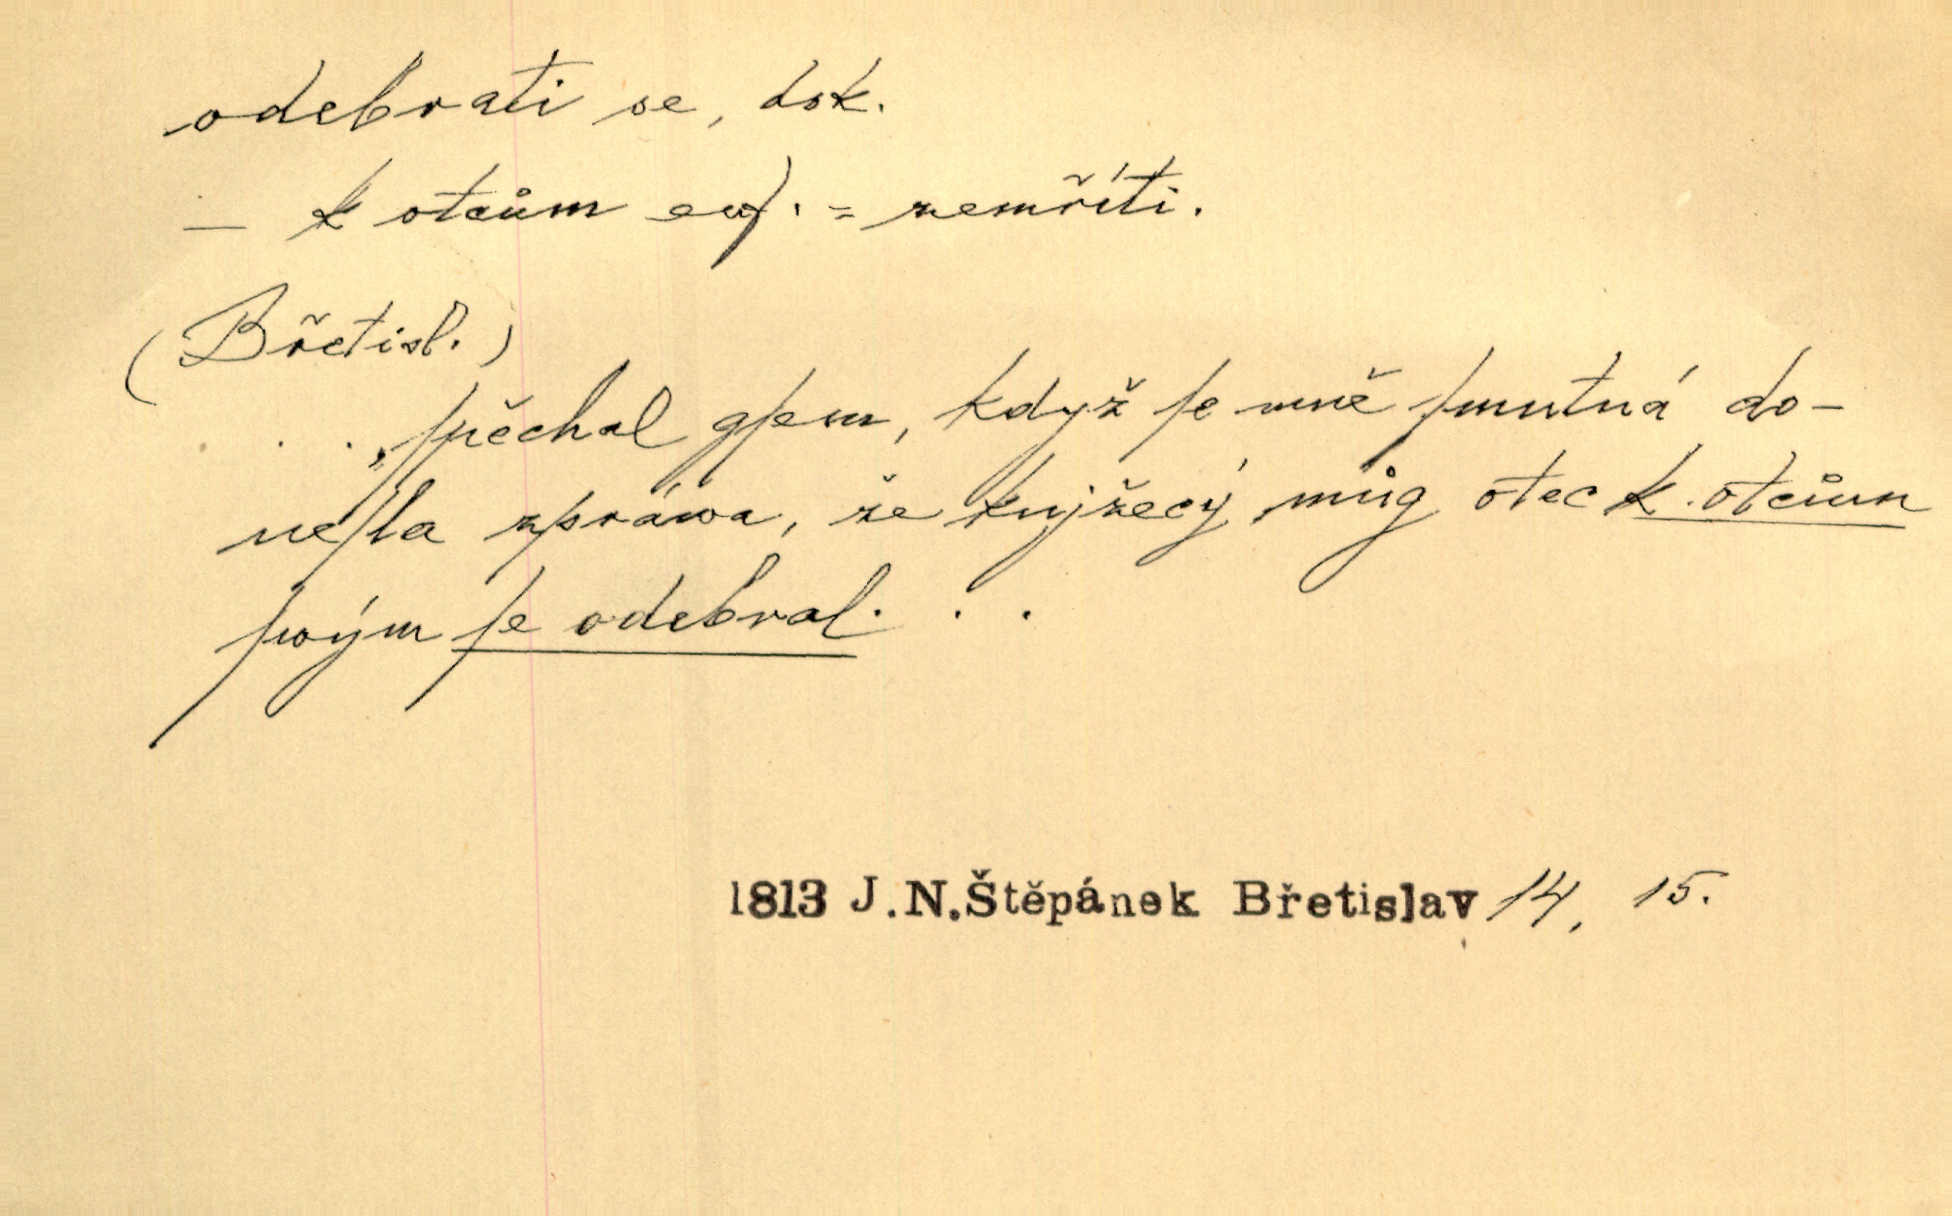 odebrati se, dok.
— k otcům euf. = zemříti.
(Břetisl.)
. . , ſpěchal gſem, když ſe mně ſmutná do-
neſla zpráwa, že knjžecý můg otec k otcům
ſwým ſe odebral. . .
1813 J.N.Štěpánek Břetislav 14, 15.